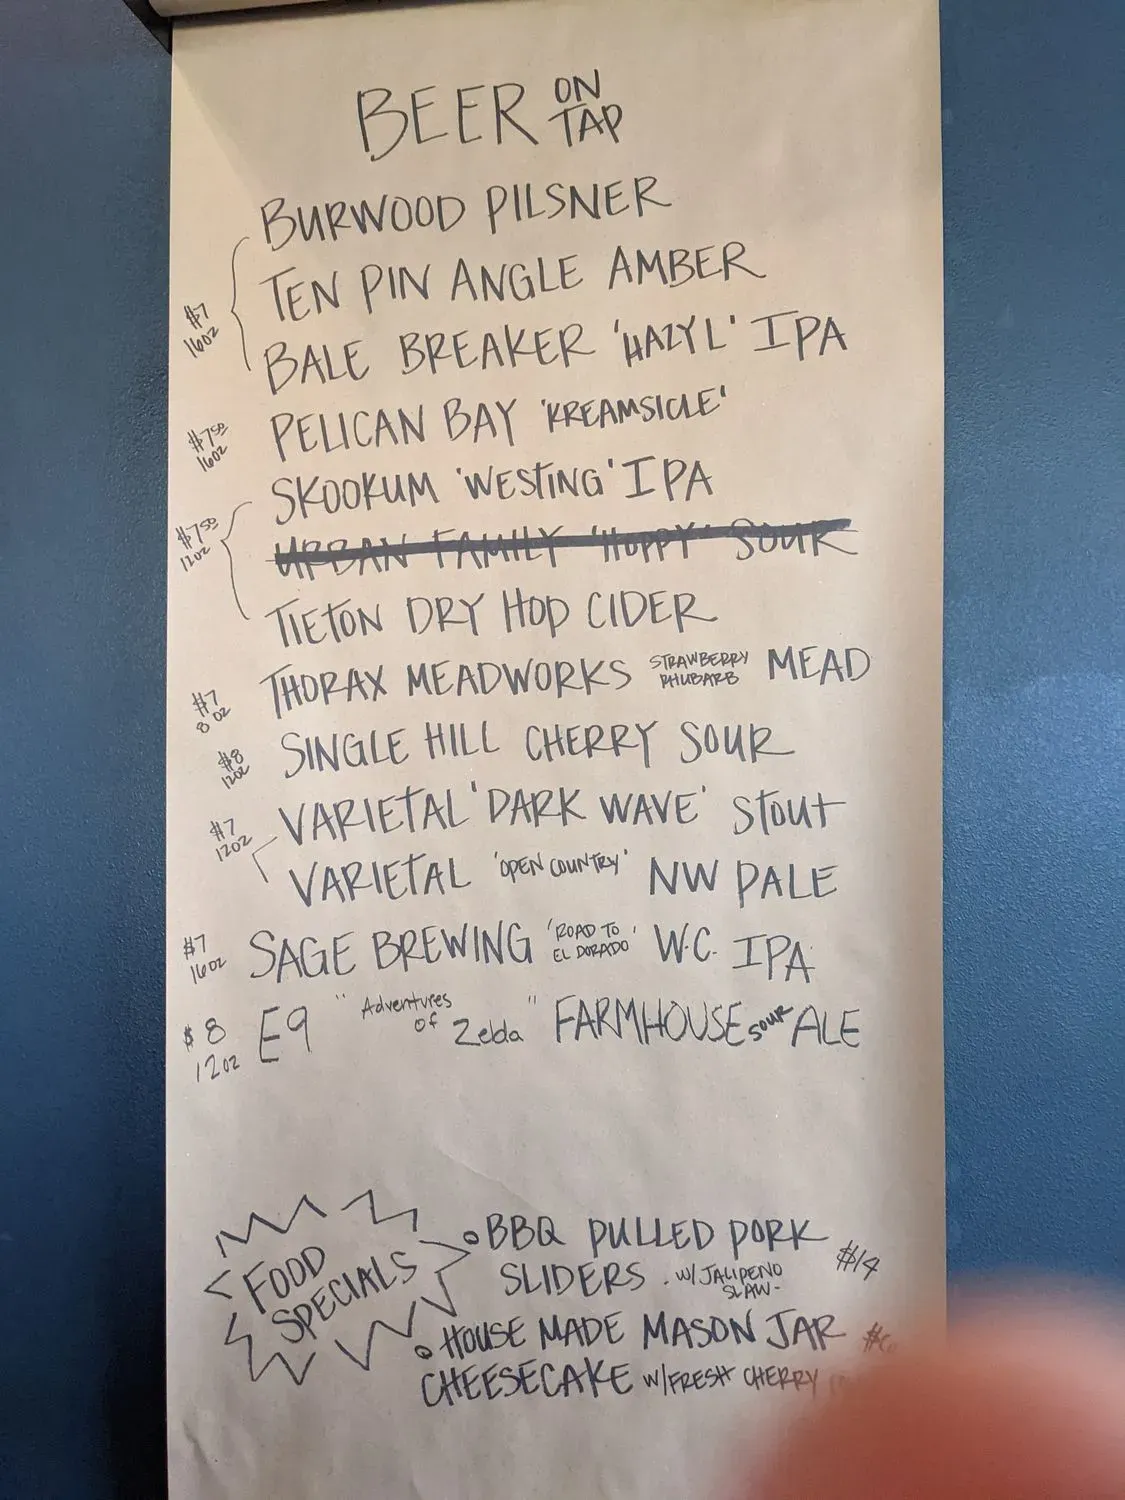 BEER ON TAP
BURWOOD PILSNER
TEN PIN ANGLE AMBER
$7 16OZ
BALE BREAKER 'HAZY L' IPA
$7.50 16OZ
PELICAN BAY 'KREAMSICLE'
SKOOKUM 'WESTING' IPA
$7.50 12OZ
URBAN FAMILY 'HOPPY' SOUR
TIETON DRY HOP CIDER
$7 8 OZ
THORAX MEADWORKS STRAWBERRY RHUBARB MEAD
$8 12OZ
SINGLE HILL CHERRY SOUR
$7 12OZ
VARIETAL 'DARK WAVE' STOUT
VARIETAL 'OPEN COUNTRY' NW PALE
$7 16OZ
SAGE BREWING 'ROAD TO EL DORADO' W.C. IPA
$8 12OZ
E9 "Adventures Of Zelda" FARMHOUSE SOUR ALE
FOOD SPECIALS
BBQ PULLED PORK
SLIDERS - W/JALIPENO SLAW-
$14
HOUSE MADE MASON JAR
CHEESECAKE W/FRESH CHERRY